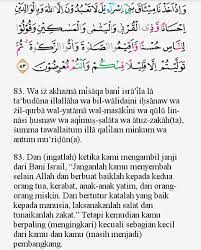 وَإِذْ أَخَذْنَا مِيثَاقَ بَنِي إِسْرَائِيلَ لَا تَعْبُدُونَ إِلَّا اللَّهَ وَبِالْوَالِدَيْنِ
إِحْسَانًا وَذِي الْقُرْبَىٰ وَالْيَتَامَىٰ وَالْمَسَاكِينِ وَقُولُوا
لِلنَّاسِ حُسْنًا وَأَقِيمُوا الصَّلَاةَ وَآتُوا الزَّكَاةَ ثُمَّ
تَوَلَّيْتُمْ إِلَّا قَلِيلًا مِنْكُمْ وَأَنْتُمْ مُعْرِضُونَ ٨٣
83. Wa iz akhaznā mīṡāqa banī isrā`īla lā
ta'budūna illallāha wa bil-wālidaini iḥsānaw wa
żil-qurbā wal-yatāmā wal-masākīni wa qūlū lin-
nāsi ḥusnaw wa aqīmuṣ-ṣalāta wa ātuz-zakāh(ta),
summa tawallaitum illā qalīlam minkum wa
antum mu'riḍūn(a).
83. Dan (ingatlah) ketika kami mengambil janji
dari Bani Israil, "Janganlah kamu menyembah
selain Allah dan berbuat baiklah kepada kedua
orang tua, kerabat, anak-anak yatim, dan orang-
orang miskin. Dan bertutur katalah yang baik
kepada manusia, laksanakanlah salat dan
tunaikanlah zakat." Tetapi kemudian kamu
berpaling (mengingkari) kecuali sebagian kecil
dari kamu dan kamu (masih menjadi)
pembangkang.